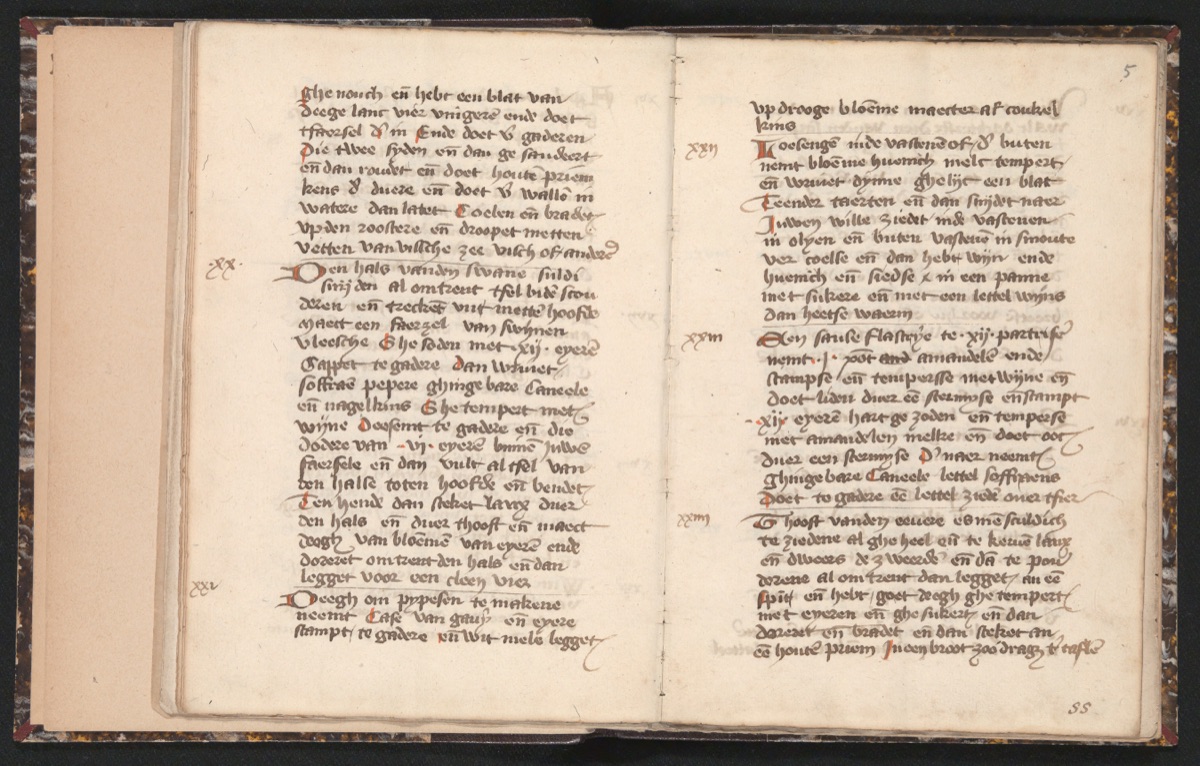 ghenouch en̄ hebt een blat van
deege lanc vier vingerē ende doet
tfaersel d' in Ende doet v' gaderen
Die twee syden en̄ dan ge saudeert
en̄ dan roudet en̄ doet houtē priem
kens d' duere en̄ doet v' wallē in
watere dan latet Coelen en̄ bradet
vp den roostere en̄ droopet metten
vetten van vissche zee visch of andere
xx.
Den hals vanden swane suldi
snijden al omtrent tfel bidē scou
deren en̄ treckēt vut mettē hoofde
Maect een faerzel van swynen
vleesche Ghesoden met .xij. eyerē
Cappet te gadere dan wrivet
soffraē pepere ghingebare Caneele
en̄ nagelkins Ghetempert met
wyne Doesemt te gadere en̄ die
dodere van .vj. eyerē binnē Juwē
faersele en̄ dan vult al tfel van
den halse toten hoofde en̄ bendet
Ten hende dan steket lancx duer
den hals en̄ duer thooft en̄ maect
deegh van bloēmē van eyerē ende
doreret omtrent den hals en̄ dan
legget voor een cleen vier
xxi
Deegh om pypesen te makene
neemt Case van gauy en̄ eyere
stampt te gadere en̄ wit mele legget
5
vp drooge bloēme maecter af coukel
kins
xxij
Loesengē inde vastenē of d' buten
nemt bloēme huenich melc tempert
en̄ wrivet dynne ghelijc een blat
Teender taerten en̄ dan snydet naer
Juwen wille ziedet inde vastenen
in olyen en̄ buten vastenē in smoute
ver coelse en̄ dan hebt wyn ende
huenich en̄ siedse in een panne
met sukere en̄ met een lettel wyns
dan heetse waerm
xxiij
Een sause flastrye te .xij. partrysē
nemt .j. pōt amandelē ende
stampse en̄ tempersse met wyne en̄
doet liden duer eē stermyse en̄ stampt
.xij. eyerē hart ge zoden en̄ temperse
met amandelen melke en̄ doet ooc
duer een stermyse D' naer neemt
ghingebare Caneele lettel soffraens
Doet te gadere eē lettel ziedē over tfier
xxiiij
Thooft vanden evere es mē sculdich
te ziedene al gheheel en̄ te kervē lancx
en̄ dweers de zweerde en̄ dā te pou
derene al omtrent dan legget an eē
spit en̄ hebt goet deegh ghe tempert
met eyeren en̄ ghesukert en̄ dan
doreret en̄ bradet en̄ dan steket an
eē houtē priem In een broot zoo dragᵗ tē taflē
SS